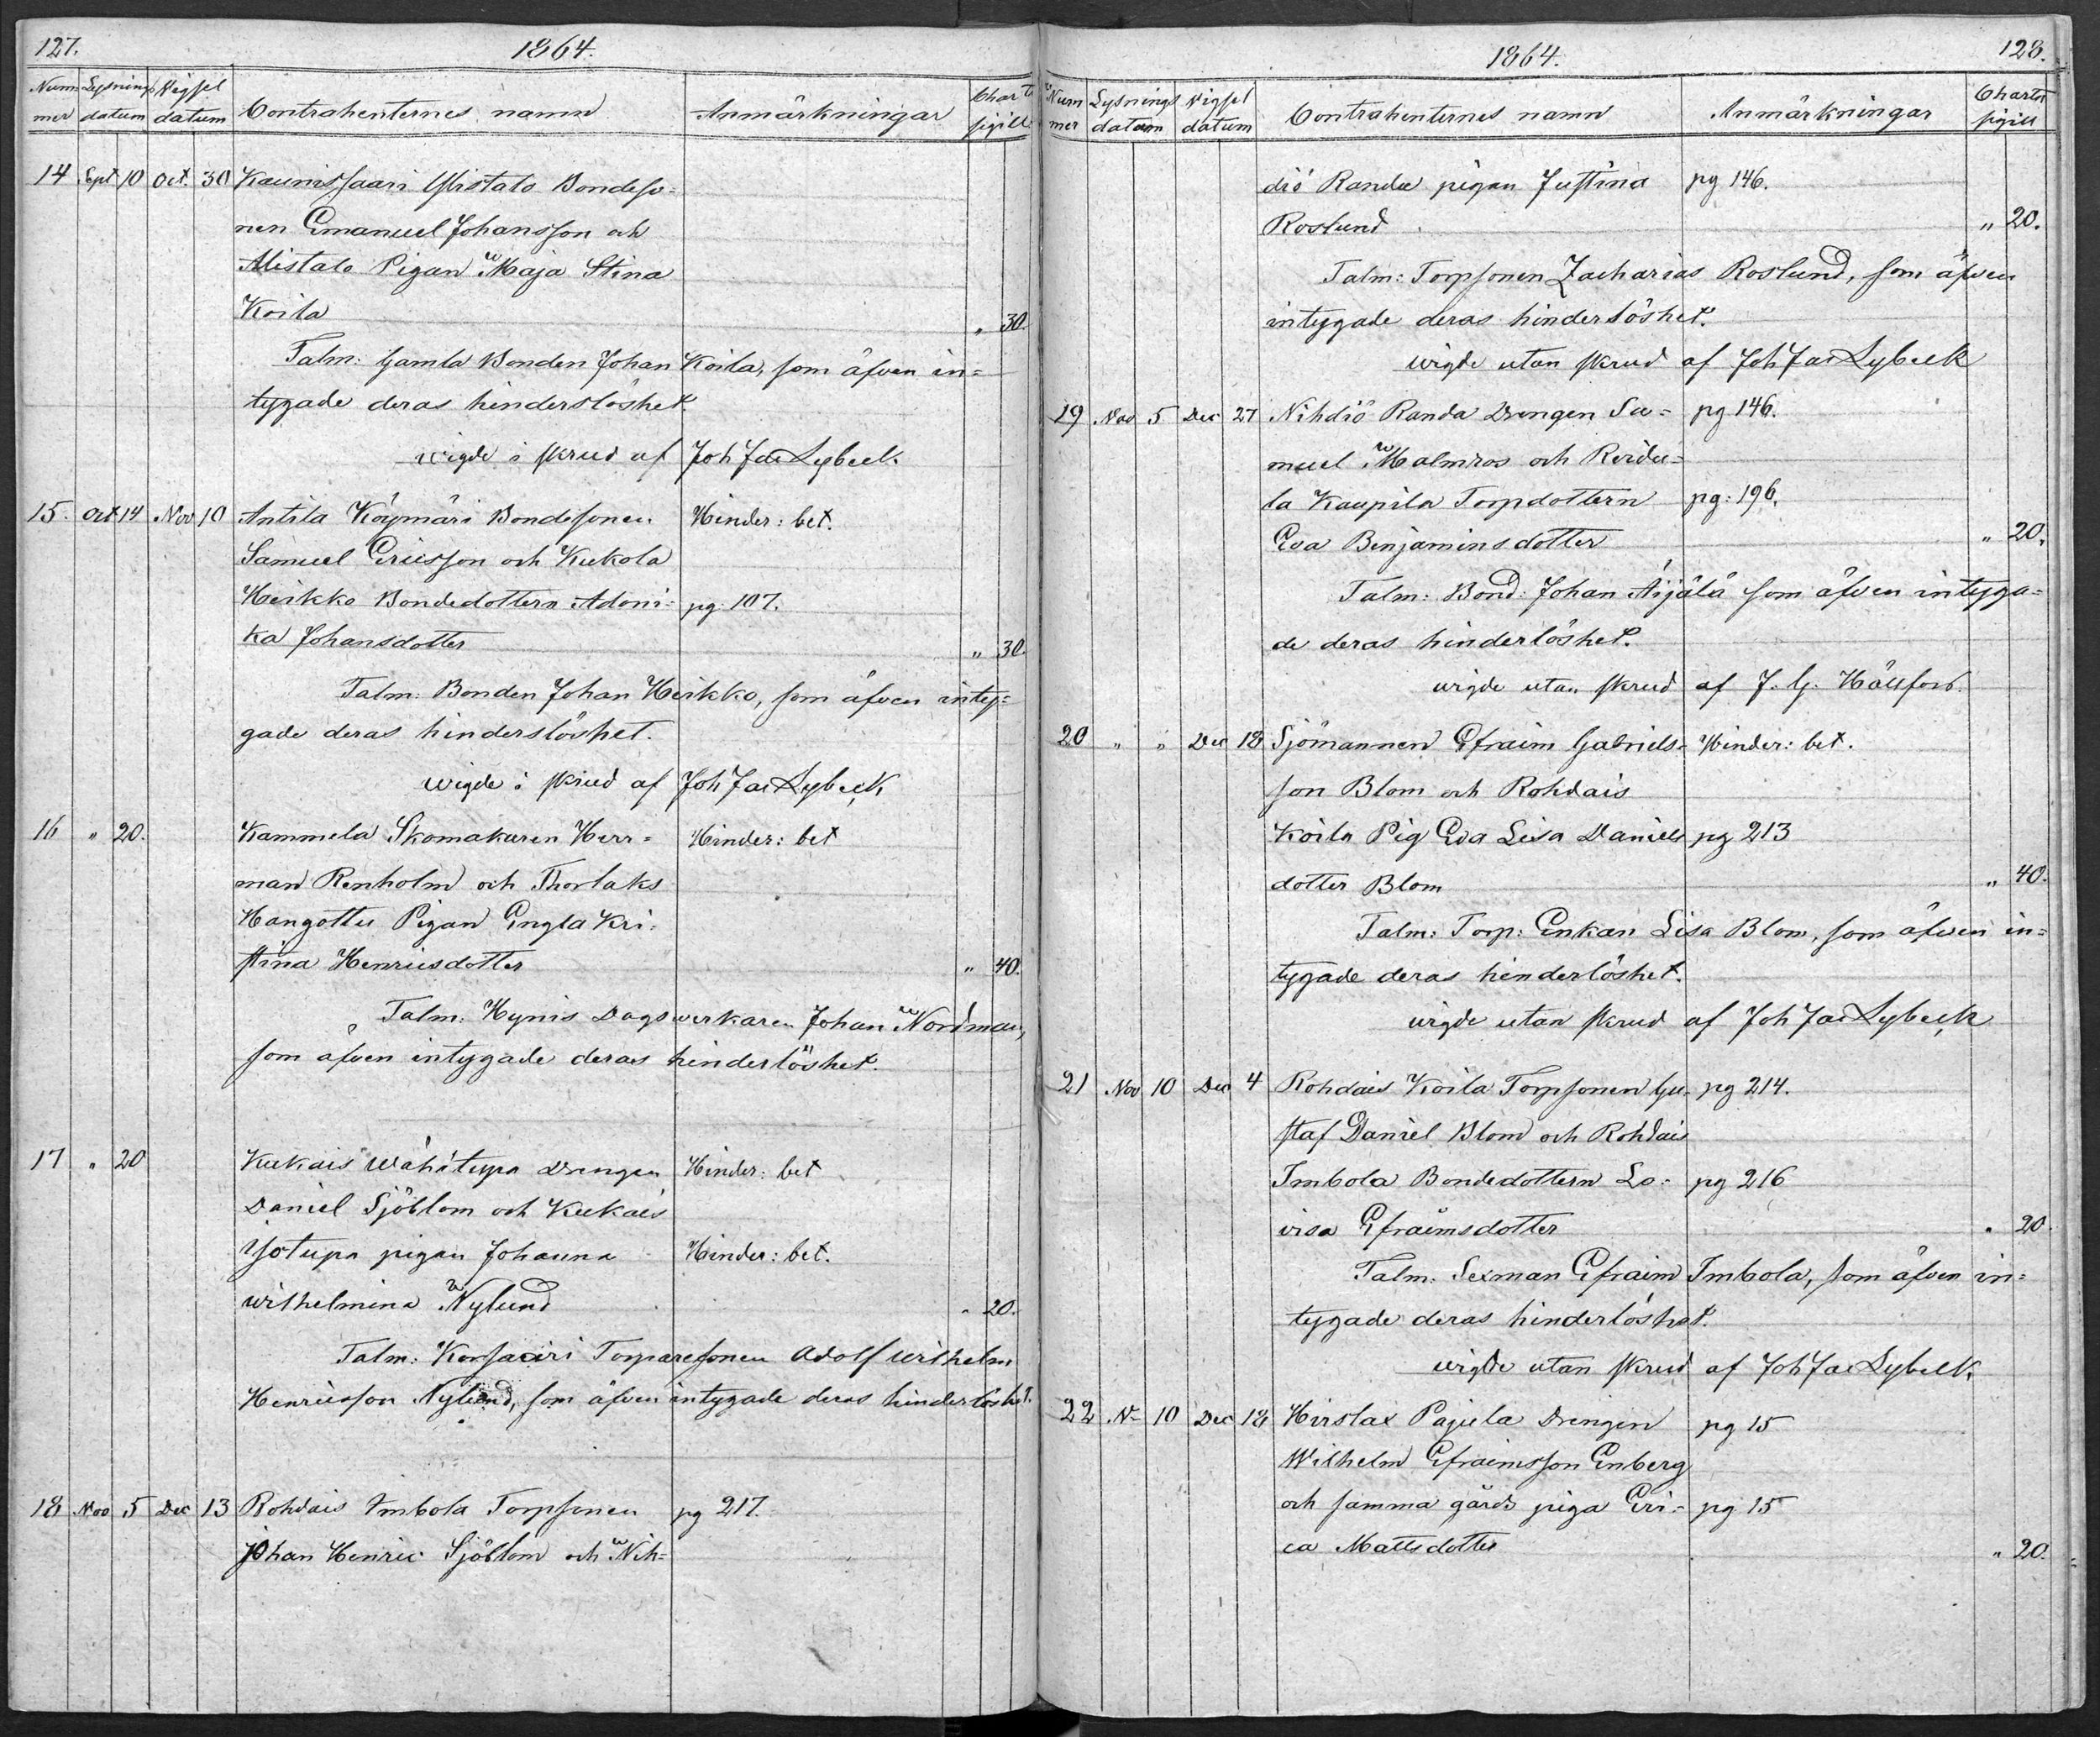 127.
1864.
Num Lysnings Vigsel
mer datum datum Contrahenternes namn Anmärkningar Charta sigill
14 Sept 10 Oct. 30 Kaunissaari Ylistalo Bondeso=
nen Emanuel Johansson och
Alistalo Pigan Maja Stina
Koila " 30.
Talm: Gamla Bonden Johan Koila, som äfven in=
tygade deras hinderslöshet.
wigde i skrud af Joh Jac Lybeck.
15. Oct 14 Nov 10 Antila Köymäri Bondesonen Hinder: bet.
Samuel Ericsson och Kukola
Heikko Bondedottern Adoni= pg 107.
ka Johansdotter " 30.
Talm: Bonden Johan Heikko, som äfven inty=
gade deras hinderslöshet.
wigde i skrud af Joh Jac Lybeck
16 " 20. Kammela Skomakaren Herr= Hinder: bet
man Renholm och Thorlaks
Hangottu Pigan Engla Kri=
stina Henricsdotter " 40.
Talm: Hynis Dagswerkaren Johan Nordman,
som äfven intygade deras hinderlöshet.
17 " 20 Kukais Wähätupa Drengen Hinder: bet
Daniel Sjöblom och Kukais
Isotupa pigan Johanna Hinder: bet.
Wilhelmina Nylund " 20.
Talm: Korsaari Torparesonen Adolf Wilhelm
Henricsson Nylund, som äfven intygade deras hinderlöshet.
18 Nov 5 Dec 13 Rohdais Imbola Torpsonen pg 217.
Johan Henric Sjöblom och Nih=
1864.
128.
Num Lysnings Vigsel
mer datum datum Contrahenternes namn Anmärkningar Charta sigill
diö Randa pigan Justina pg 146.
Roslund " 20.
Talm: Torpsonen Zacharias Roslund, som äfven
intygade deras hinderlöshet.
wigde utan skrud af Joh Jac Lybeck
19 Nov 5 Dec 27 Nihdiö Randa Drengen Sa= pg 146.
muel Malmros och Reidu=
la Kaupila Torpdottern pg: 196.
Eva Benjaminsdotter " 20.
Talm: Bond: Johan Äijälä som äfven intyga=
de deras hinderlöshet.
wigde utan skrud af J. G. Hällfors.
20 " " Dec 18 Sjömannen Efraim Gabriels= Hinder: bet.
son Blom och Rohdais
Koila Pig Eva Lisa Daniels pg 213
dotter Blom " 40.
Talm: Torp: Enkan Lisa Blom, som äfven in=
tygade deras hinderlöshet.
wigde utan skrud af Joh Jac Lybeck
21 Nov 10 Dec 4 Rohdais Koila Torpsonen Gu= pg 214.
staf Daniel Blom och Rohdais
Imbola Bondedottern Lo= pg 216
visa Efraimsdotter " 20.
Talm: Sexman Efraim Imbola, som äfven in=
tygade deras hinderlöshet.
wigde utan skrud af Joh Jac Lybeck.
22 N= 10 Dec 18 Hirslax Pajula Drengen pg 15
Wilhelm Efraimsson Enberg
och samma gårds piga Eri= pg 15
ca Mattsdotter " 20.